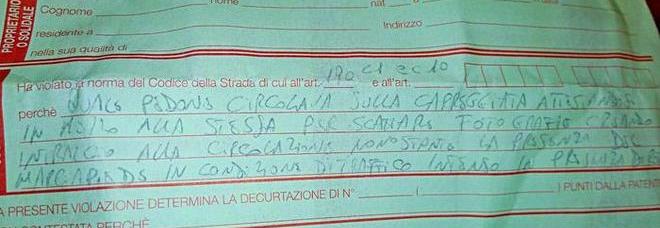 PROPRIETARIO
O SOLIDALE
Cognome
nome
nat
residente a
Indirizzo
nella sua qualità di
Ha violato la norma del Codice della Strada di cui all'art. 190 C1 e C10 e all'art.
perchè QUALE PEDONE CIRCOLAVA SULLA CARREGGIATA
IN MEZZO ALLA STESSA PER SCATTARE FOTOGRAFIE CREANDO
INTRALCIO ALLA CIRCOLAZIONE NONOSTANTE LA PRESENZA DEL
MARCIAPIEDE IN CONDIZIONI DI TRAFFICO INTENSO IN PRESENZA DI
A PRESENTE VIOLAZIONE DETERMINA LA DECURTAZIONE DI N° I PUNTI DALLA PATENT
CONTESTATA PERCHÈ